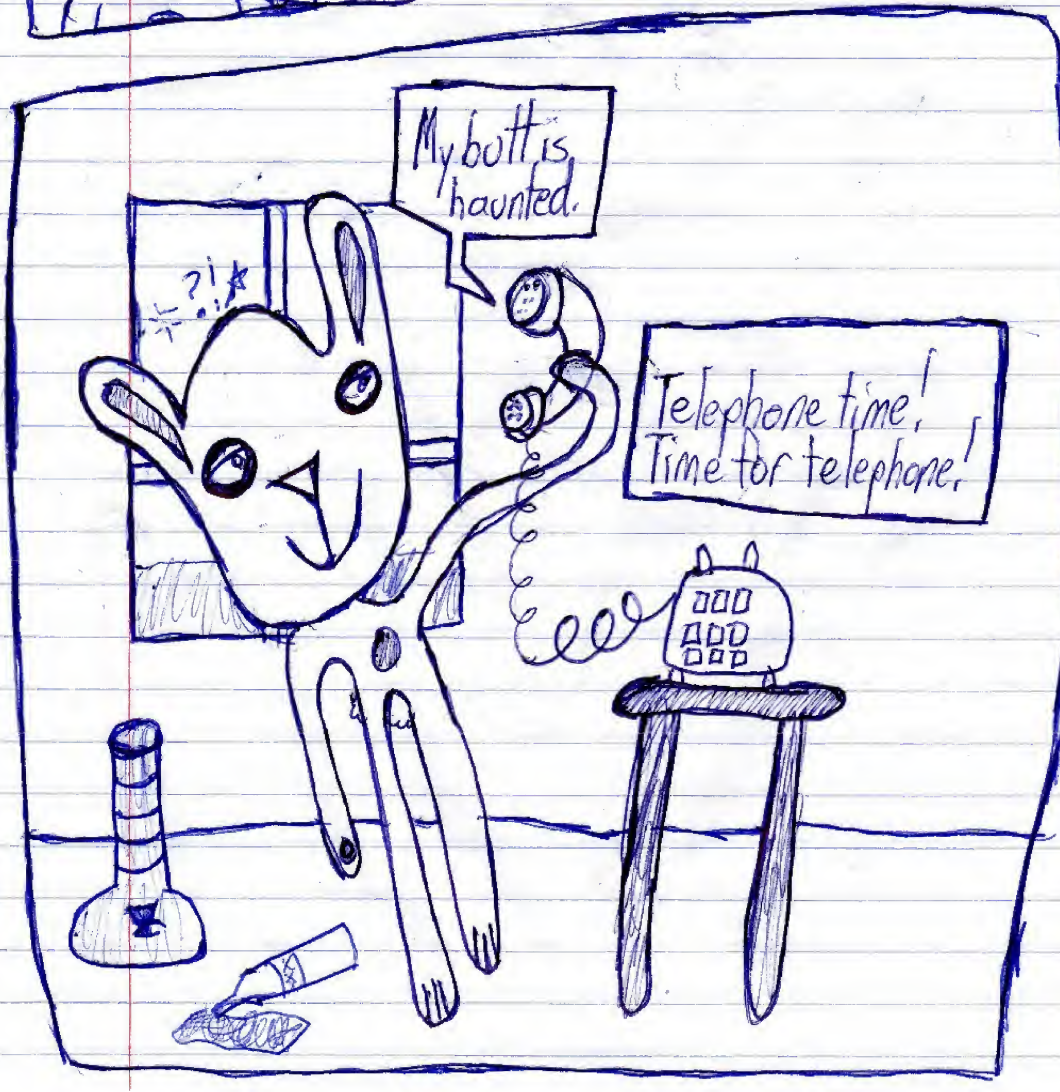 My butt is
haunted.
?!
Telephone time!
Time for telephone!